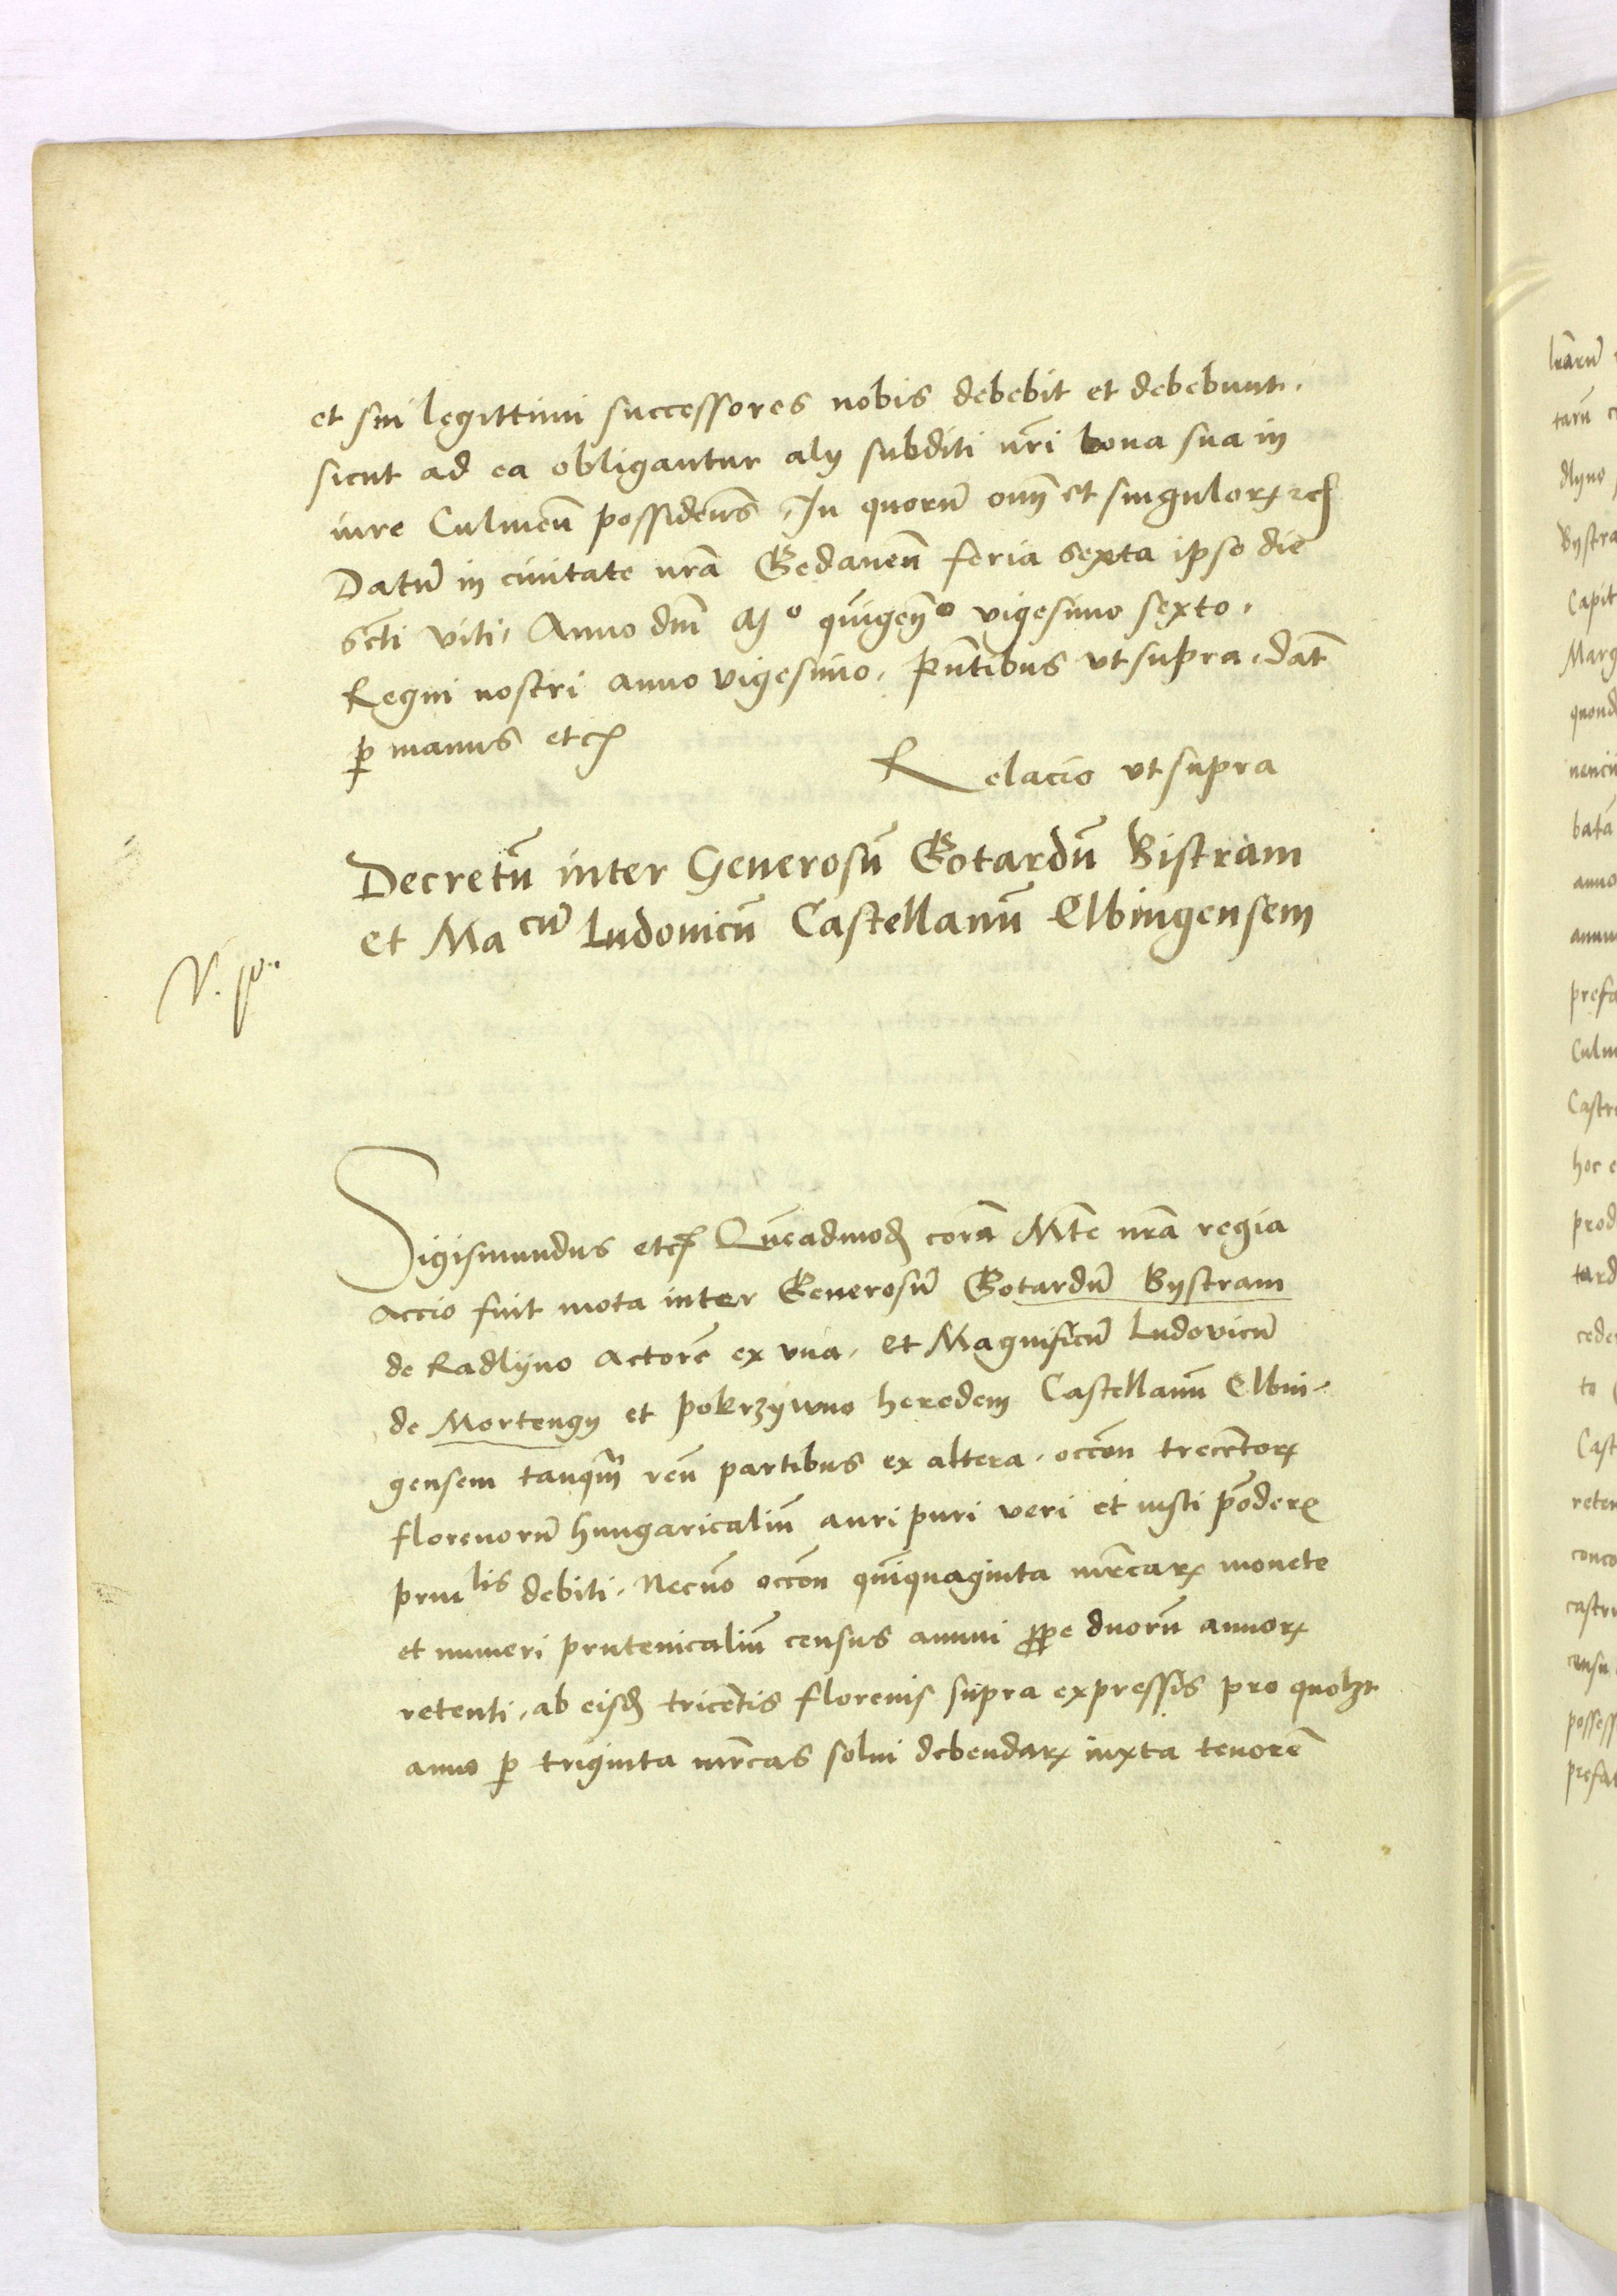 et sui legittimi successores nobis debebit et debebunt.
sicut ad ea obligantur alij subditi nr̃i bona sua in
iure Culmeñ possideñs. In quorũ oĩm et singulorꝝ etc̃
Datũ in ciuitate nrã Gedaneñ feria sexta ipso die
Scti Viti, Anno dnĩ Mº quĩgenº vigesimo sexto.
Regni nostri anno vigesimo. Pñtibus vt supra. Dat̃
ꝑ manus etc̃
Relacio vt supra
Decretũ inter Generosũ Gotardũ Bistram
et Macũ Ludouicũ Castellanũ Elbingensem
Sigismundus etc̃ Quẽadmođ corã Mte nrã regia
accio fuit mota inter Generosũ Gotardũ Bystram
de Radlyno Actorẽ ex vna, et Magnificũ Ludovicũ
de Mortengy et pokrzywno heredem Castellanũ Elbin-
gensem tanq̃m reũ partibus ex altera. occoñ trecẽtorꝝ
florenorũ hungaricaliũ auri puri veri et iusti põderis
prinlis debiti. Necnõ occoñ quĩquaginta mrcarꝝ monete
et numeri prutenicaliũ census annui ꝓpe duorũ annorꝝ
retenti, ab eisđ tricẽtis florenis supra expressis pro quolzt
anno ꝑ triginta mrcas solui debendarꝝ iuxta tenorẽ